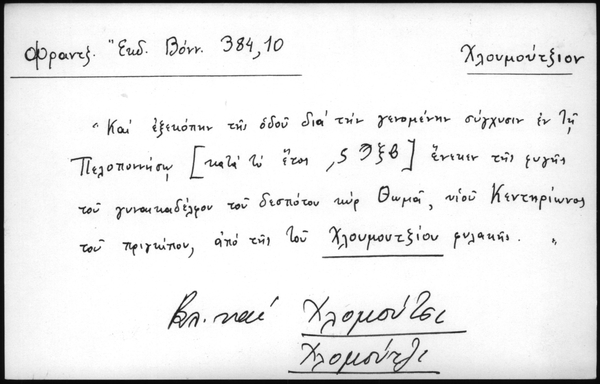 Φραντζ. Ἔκδ. Βόνν. 384,10
Χλουμούτζιον
"Καὶ ἐξεκόπην τῆς ὁδοῦ διὰ τὴν γενομένην σύγχυσιν ἐν τῇ
Πελοποννήσῳ [κατὰ τὸ ἔτος ,ϛ϶ξβ] ἕνεκεν τῆς φυγῆς
τοῦ γυναικαδέλφου τοῦ δεσπότου κὺρ Θωμᾶ, υἱοῦ Κεντηρίωνος
τοῦ πρίγκιπου, ἀπὸ τῆς τοῦ Χλουμουτζίου φυλακῆς. "
Βλ. καὶ Χλομούτσι
Χλομούτζι